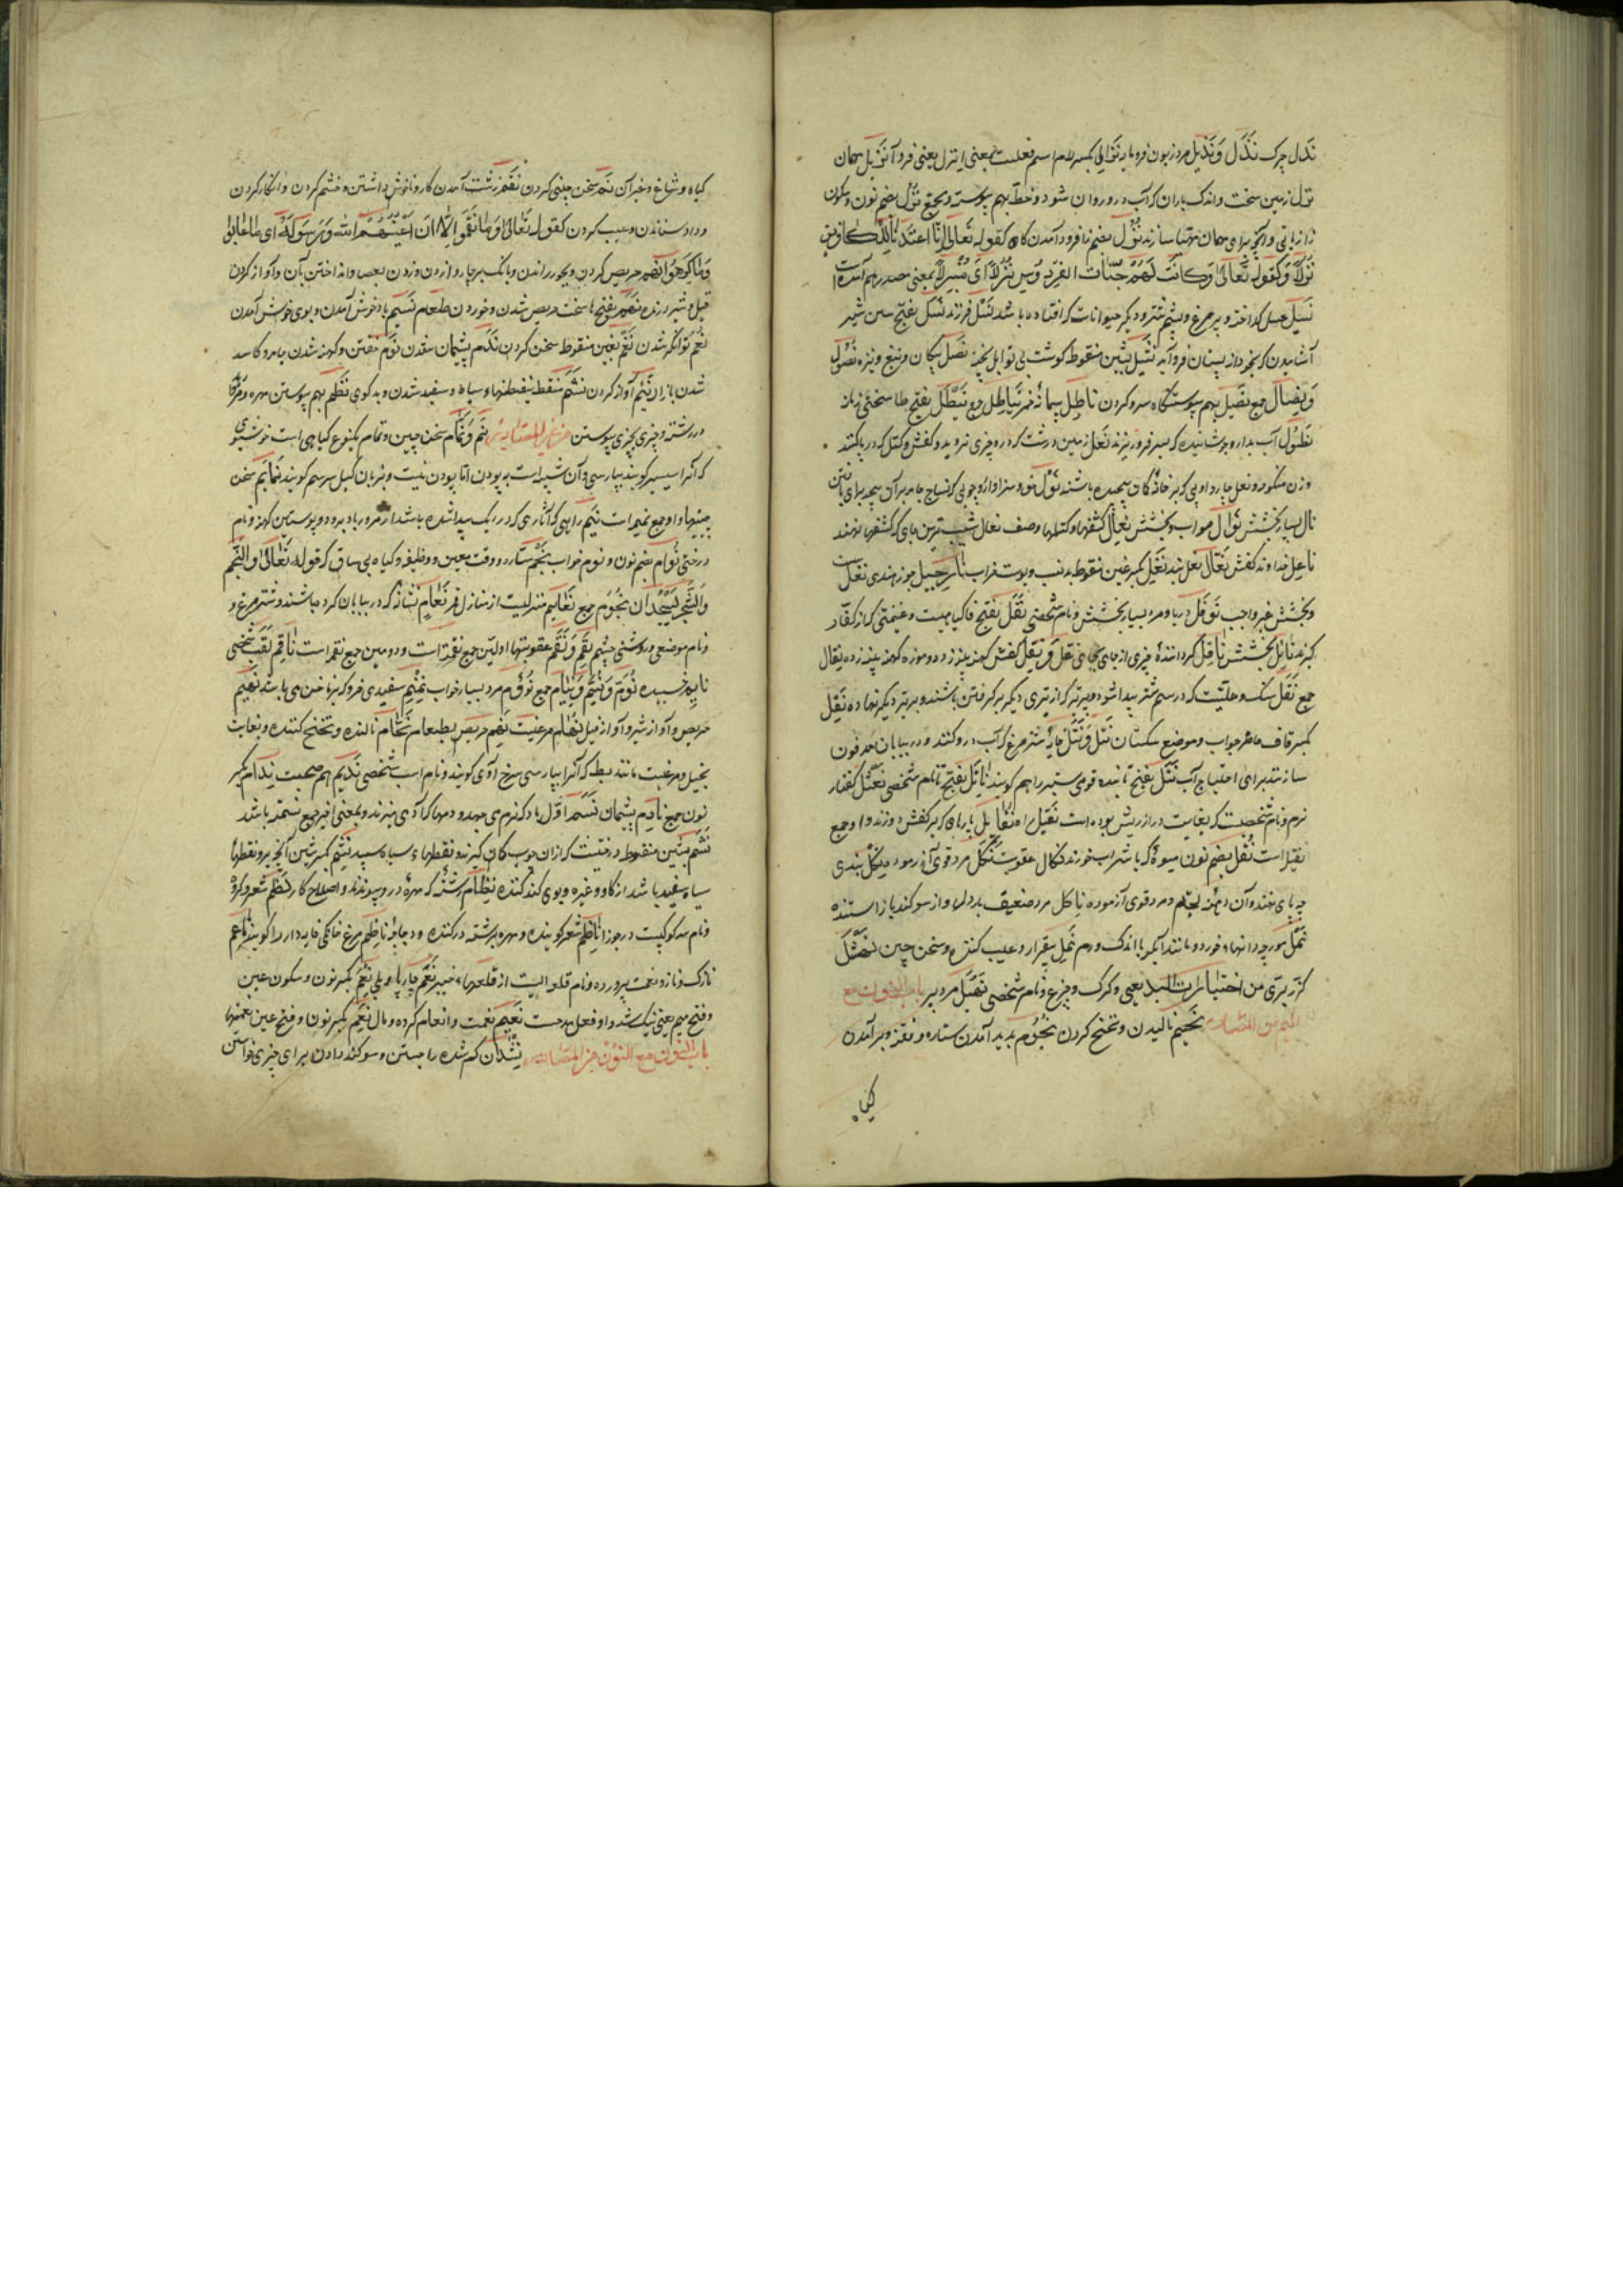 نَذل چرک نَذْل وَ نَذیل مرد زبون فرومایه نَزالِ بکسر لام اسم فعلست بمعنی انزل یعنی فرود آ نَزیل مهمان
نزل زمین سخت و اندک باران که آب درو روان شود و خط بهم پیوسته و جمع نزل بضم نون و سکون
زا روانی و آنچه برای مهمان مهیا سازند نُزُل بضم زا فرود آمدن کاه کقوله تَعالی اِنّا اَعتَدنا لِلکافرین
نُزُلاً وَ کقوله تَعالی کانَت لَهُم جَنّات الفِردَوس نُزُلاً ای منزلاً بمعنی مصدر هم آمده است
نَسیل عسل گداخته و پر مرغ و پشم شتر و دیگر حیوانات که افتاده باشد نَسل فرزند نَسَل بفتح سین شیر
آشامیدن که بخود از پستان فرو آید نَشیل بشین منقوطه گوشت بی توابل پخته نَصل پیکان و تیغ و نیزه نُصُول
وَ نِصال جمع نَصیل بهم پیوستگاه سر و گردن ناطِل پیمانهٔ خمر نَیاطِل جمع نَیطَل بفتح طا سختی زمانه
نَطُول آب بدارو جوشانیده که بسر فرو ریزند نَعل زمین درشت که درو چیزی نروید و کفش و کتل که در پا کنند
وزن منکوحه و نعل چاروا و پی که بر خانهٔ کمان پیچیده باشند نَول مزد و سزاوار و چوبی که نساج جامه بر آن پیچد برای بافتن
نال بسیار بخشش نَوال صواب و بخشش نِعال کفشها و کتلها وصف نعال شیب ترین جای که کفشها نهند
ناعِل خداوند کفش نَعّال نعل بند نَغِل بکسر غین منقوطه بدنسب و پوست خراب نارَجیل جوز هندی نَفل
و بخشش غیر واجب نَوفَل دریا و مرد بسیار بخشش و نام شخصی نَفَل بفتح فا گیاهیست و غنیمتی که از کفار
گیرند نائِل بخشش ناقِل گردانندهٔ چیزی از جای بجای نقل وَ نِقل کفش کهنه پینه زده و موزه کهنه پینه زده نِقال
جمع نَقَل سنگ و علتیست که در سم شتر پیدا شود
بکسر قاف حاضر جواب و موضع سنگستان نَتل وَ نَتَل خایهٔ شتر مرغ که آب درو کنند و در بیابان مدفون
سازند برای احتیاج آب نَتَل بفتح تا بنده قوی ستبر را هم گویند ناتَل بفتح تا نام شخصی نَعثَل کفتار
نر و نام شخصیست که بغایت دراز ریش بوده است نَقیل راه نَقایل پارهای که بر کفش دوزند و او جمع
نقیل است نُقل بضم نون میوهٔ که با شراب خورند نَکال عقوبت نَکَل مرد قوی آزموده نِکل بندی
که بپای نهند و آن دهنه لجام و مرد قوی آزموده ناکِل مرد ضعیف بددل و از سوگند باز ایستنده
نَمل مورچه و دانهای خورد و مانند آبله با اندک ورم نَمِل بیقرار و عیب کننده و سخن چین نَهشَل
گرگ و چرغ و نام شخصی نَهبَل مرد پیر باب النون مع
المیم من المصادر نَحیم نالیدن و تنحنح کردن نُجُوم پدید آمدن ستاره و نفز و برآمدن
گیاه
گیاه و شاخ و غیر آن نَمّ سخن چینی کردن نَقم زشت آمدن کار و ناخوش داشتن و خشم کردن و انکار کردن
و داد ستاندن و عیب کردن کقوله تَعالی وَ ما نَقَمُوا اِلّا اَن اَغنٰهُمُ اللّٰه وَ رَسُولُه ای ما عابوا
وَ ما کَرِهُوا نَهم حریص کردن و بخود راندن و بانگ بر چاروا زدن و زدن بعصا و انداختن بآن و آواز کردن
فیل و شیر درنده نَهَم بفتح ها سخت حریص شدن و خوردن طعام نَسیم باد خوش آمدن و بوی خوش آمدن
نُعم توانگر شدن نَغم بغین منقوطه سخن کردن نَدَم پشیمان شدن نَوم خفتن و کهنه شدن جامه و کاسد
شدن بازار نَئیم آواز کردن نَشَم منقط بنقطهاء سیاه و سفید شدن و بدگوی نَظم بهم پیوستن مهره و مروارید
در رشته و چیزی بچیزی پیوستن من غیر المصادر نَمّ وَ نَمّام سخن چین و نمام یکنوع گیاهی است خوشبوی
که آنرا سیسنبر گویند بپارسی و آن شبیه است به پودنه اما پودنه نیست و بزبان گیل سرسم گویند نَمائم سخن
چینیها و او جمع نمیمه است نیم راهی که آثاری که در ریک پیدا شده باشد از مرور باد برو و پوستین کهنه و نام
درختی نُوام بضم نون و نوم خواب نَجم ستاره و وقت معین و وظیفه و گیاه بی ساق کقوله تَعالی وَ النَّجمُ
وَ الشَّجَرُ یَسجُدان نُجُوم جمع نَعایم منزلیست از منازل قمر نَعام نشانه که در بیابان کرده باشند و شتر مرغ و
و نام موضعی و روشنی چشم نِقَم وَ نَقِم عقوبتها اولین جمع نقمة است و دومین جمع نقمة است ناقِم لقب شخصی
نایِم خسبیده نُوَّم وَ نُیَّم وَ نِیام جمع نَؤم مرد بسیار خواب نِمنِم سفیدی خرد که بر ناخن می باشد نَهیم
حریص و آواز شیر و آواز فیل نُهام مرغیست نَهِم حریص بطعام نَحّام نالنده و تنحنح کننده و بغایت
بخیل و مرغیست مانند بط که آنرا بپارسی سرخ آوی گویند و نام اسب شخصی نَدیم هم صحبت نِدام بکسر
نون جمع نادِم پشیمان نَسَم اول باد که نرم می جهد و دمها که آدمی میزند و بمعنی اخیر جمع نسمة باشد
نَشَم بشین منقوطه درختیست که از آن چوب کمان گیرند و نقطهاء سیاه و سپید نَشِم بکسر شین آنچه برو نقطهاء
سیاه و سفید باشد از گاو و غیره و بوی گند کننده نِظام رشته که مهره درو پیوندند و اصلاح کار نَظم شعر و گروه
و نام سه کوکبست در جوزا ناظِم شعر گوینده و مهره برشته در کننده و دجاجة ناظِم مرغ خانگی خایه دار را گویند ناعِم
نازک و نازو نعمت پرورده و نام قلعه ایست از قلعهاء خیبر نَعَم چارپا و بلی نِعمَ بکسر نون و سکون عین
و فتح میم یعنی نیک شد و او فعل مدحست نَعیم نعمت و انعام کرده و مال نِعَم بکسر نون و فتح عین نعمتها
باب النون مع النون من المصادر نِشدان گم شده را جستن و سوگند دادن برای چیزی خواستن